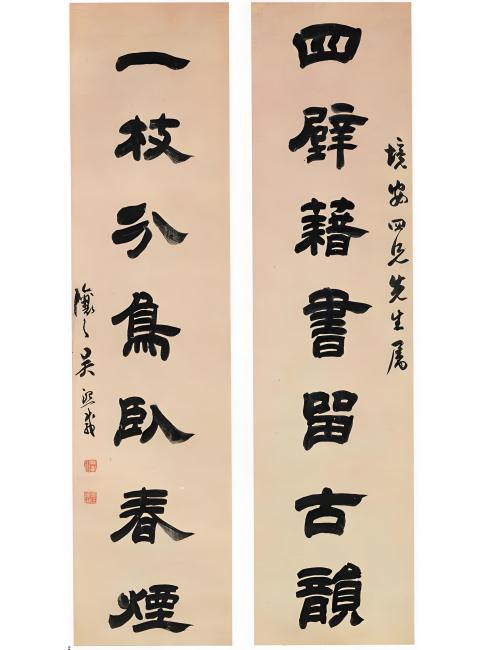 境安四兄先生属
四壁藉書留古韻
一枝分鳥臥春煙
攘之吳熙載